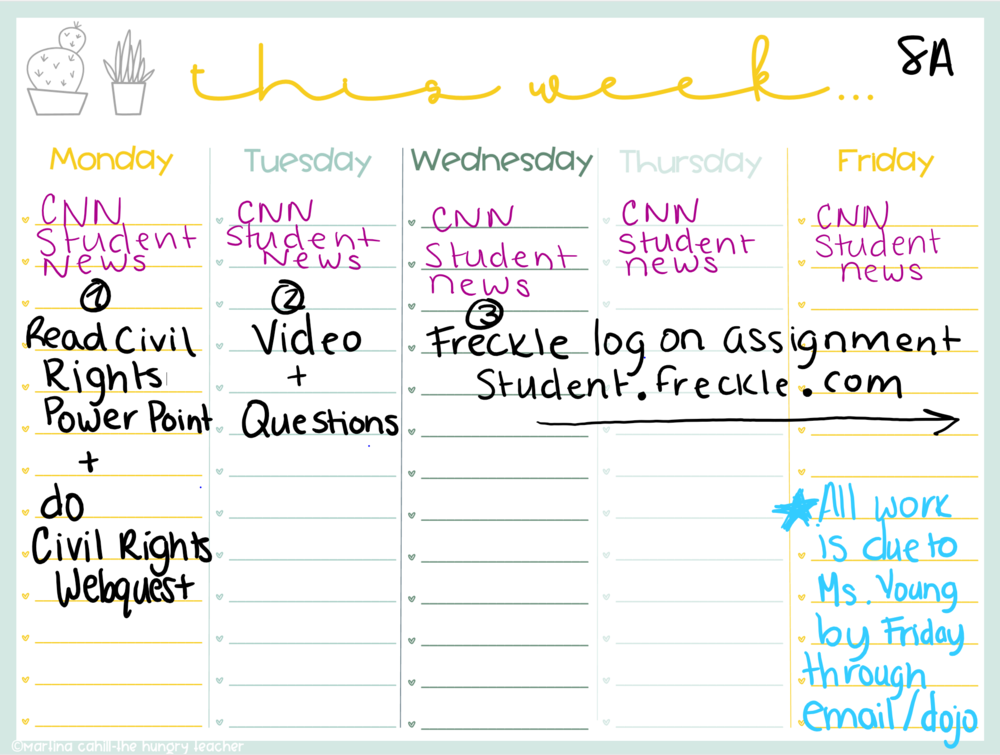 this week...
8A
Monday
CNN
Student
News
1
Read Civil
Rights
Power Point
+
do
Civil Rights
Webquest
Tuesday
CNN
Student
News
2
Video
+
Questions
Wednesday
CNN
Student
news
3
Freckle log on assignment
Student.freckle.com
Thursday
CNN
Student
news
Friday
CNN
Student
news
All work
is due to
Ms. Young
by Friday
through
email/dojo
©Martina Cahill-the hungry teacher